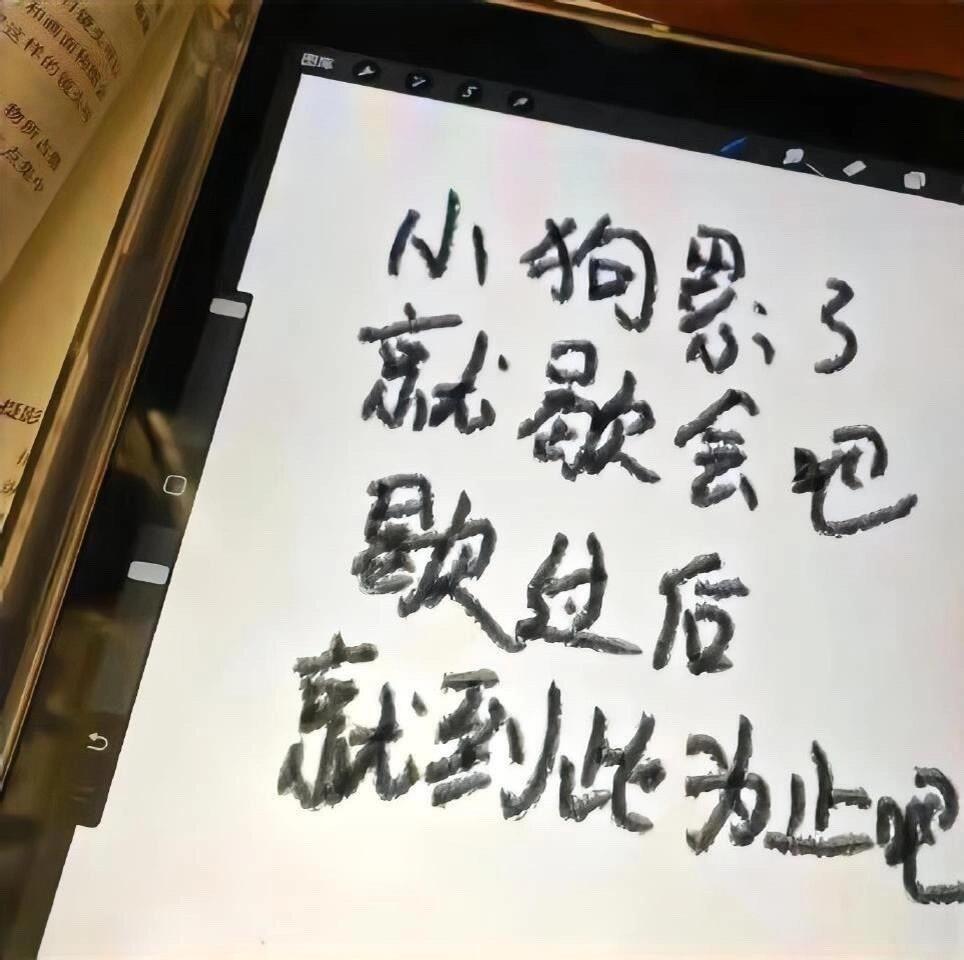 和画面构图
这样的镜头
物所占据
点集中
摄影
图库
小狗累了
就歇会吧
歇过后
就到此为止吧